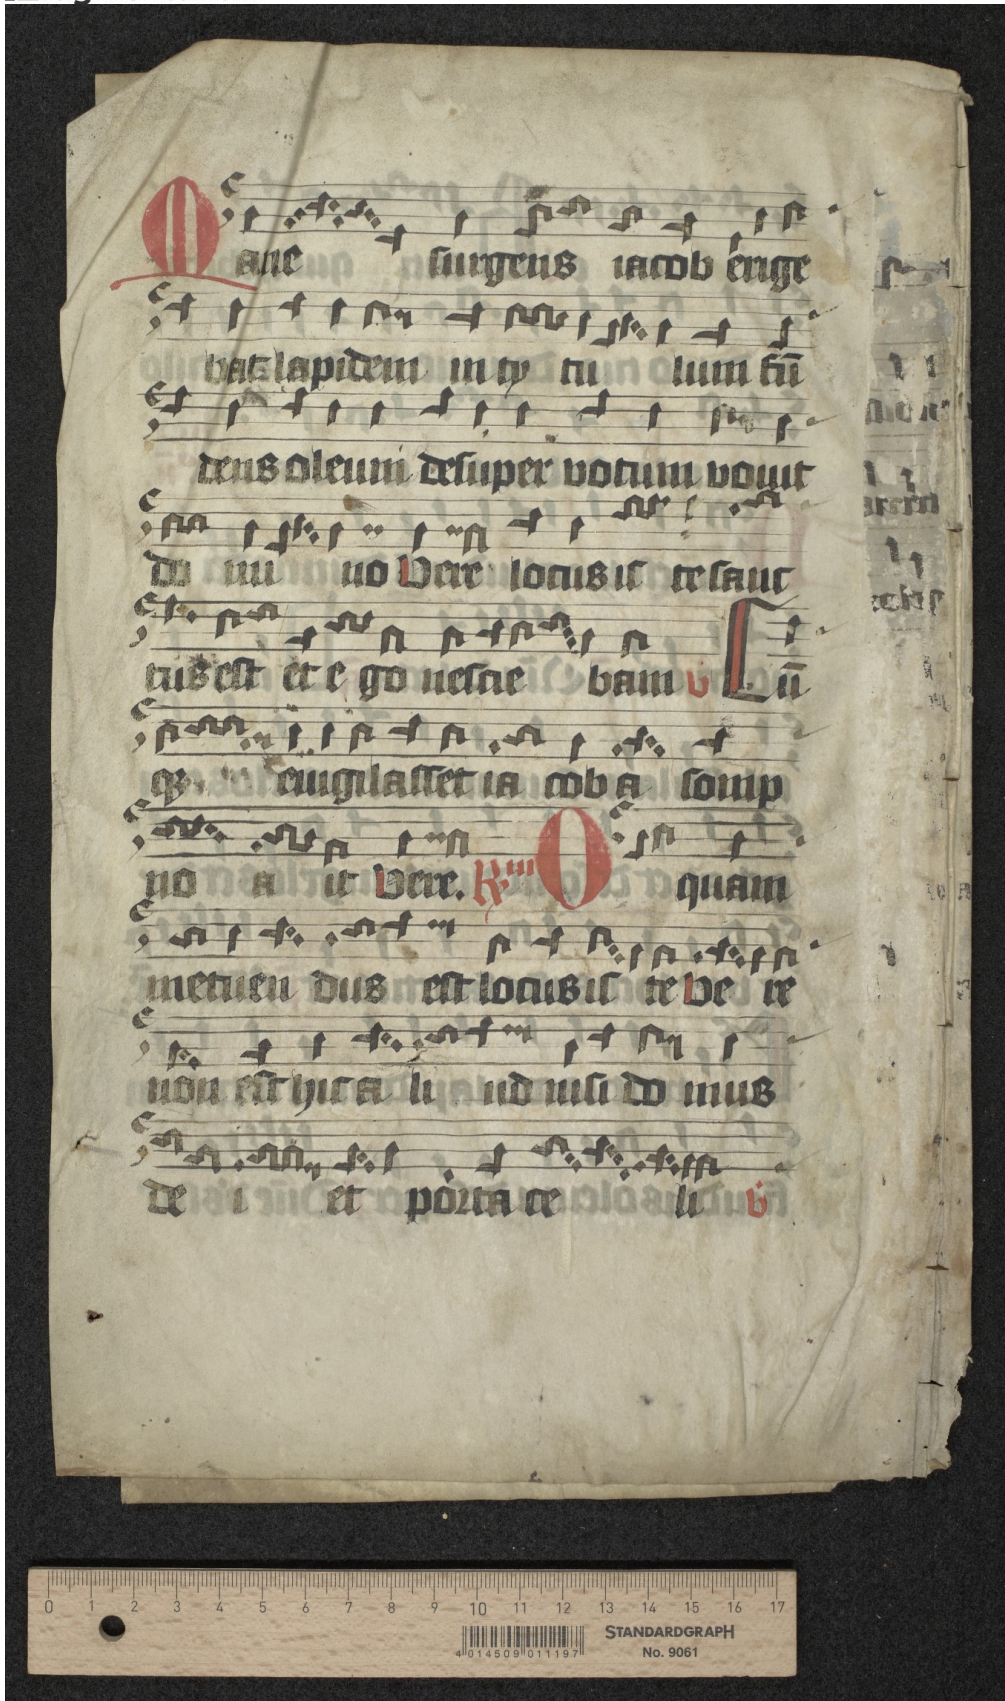 Mane surgens iacob erige
bat lapidem in ty tu lum fu̅
dens oleum desuper votum vovit
do mi no Vere locus is te sanc
tus est et e go nescie bam v̇ Cu̅
qꝫ evigilasset ia cob a somp
no a it Vere. R̷ iii O quam
metuen dus est locus is te Ve re
non est hic a li ud nisi do mus
de i et porta ce li v̇
0 1 2 3 4 5 6 7 8 9 10 11 12 13 14 15 16 17
4 014509 011197
STANDARDGRAPH
No. 9061